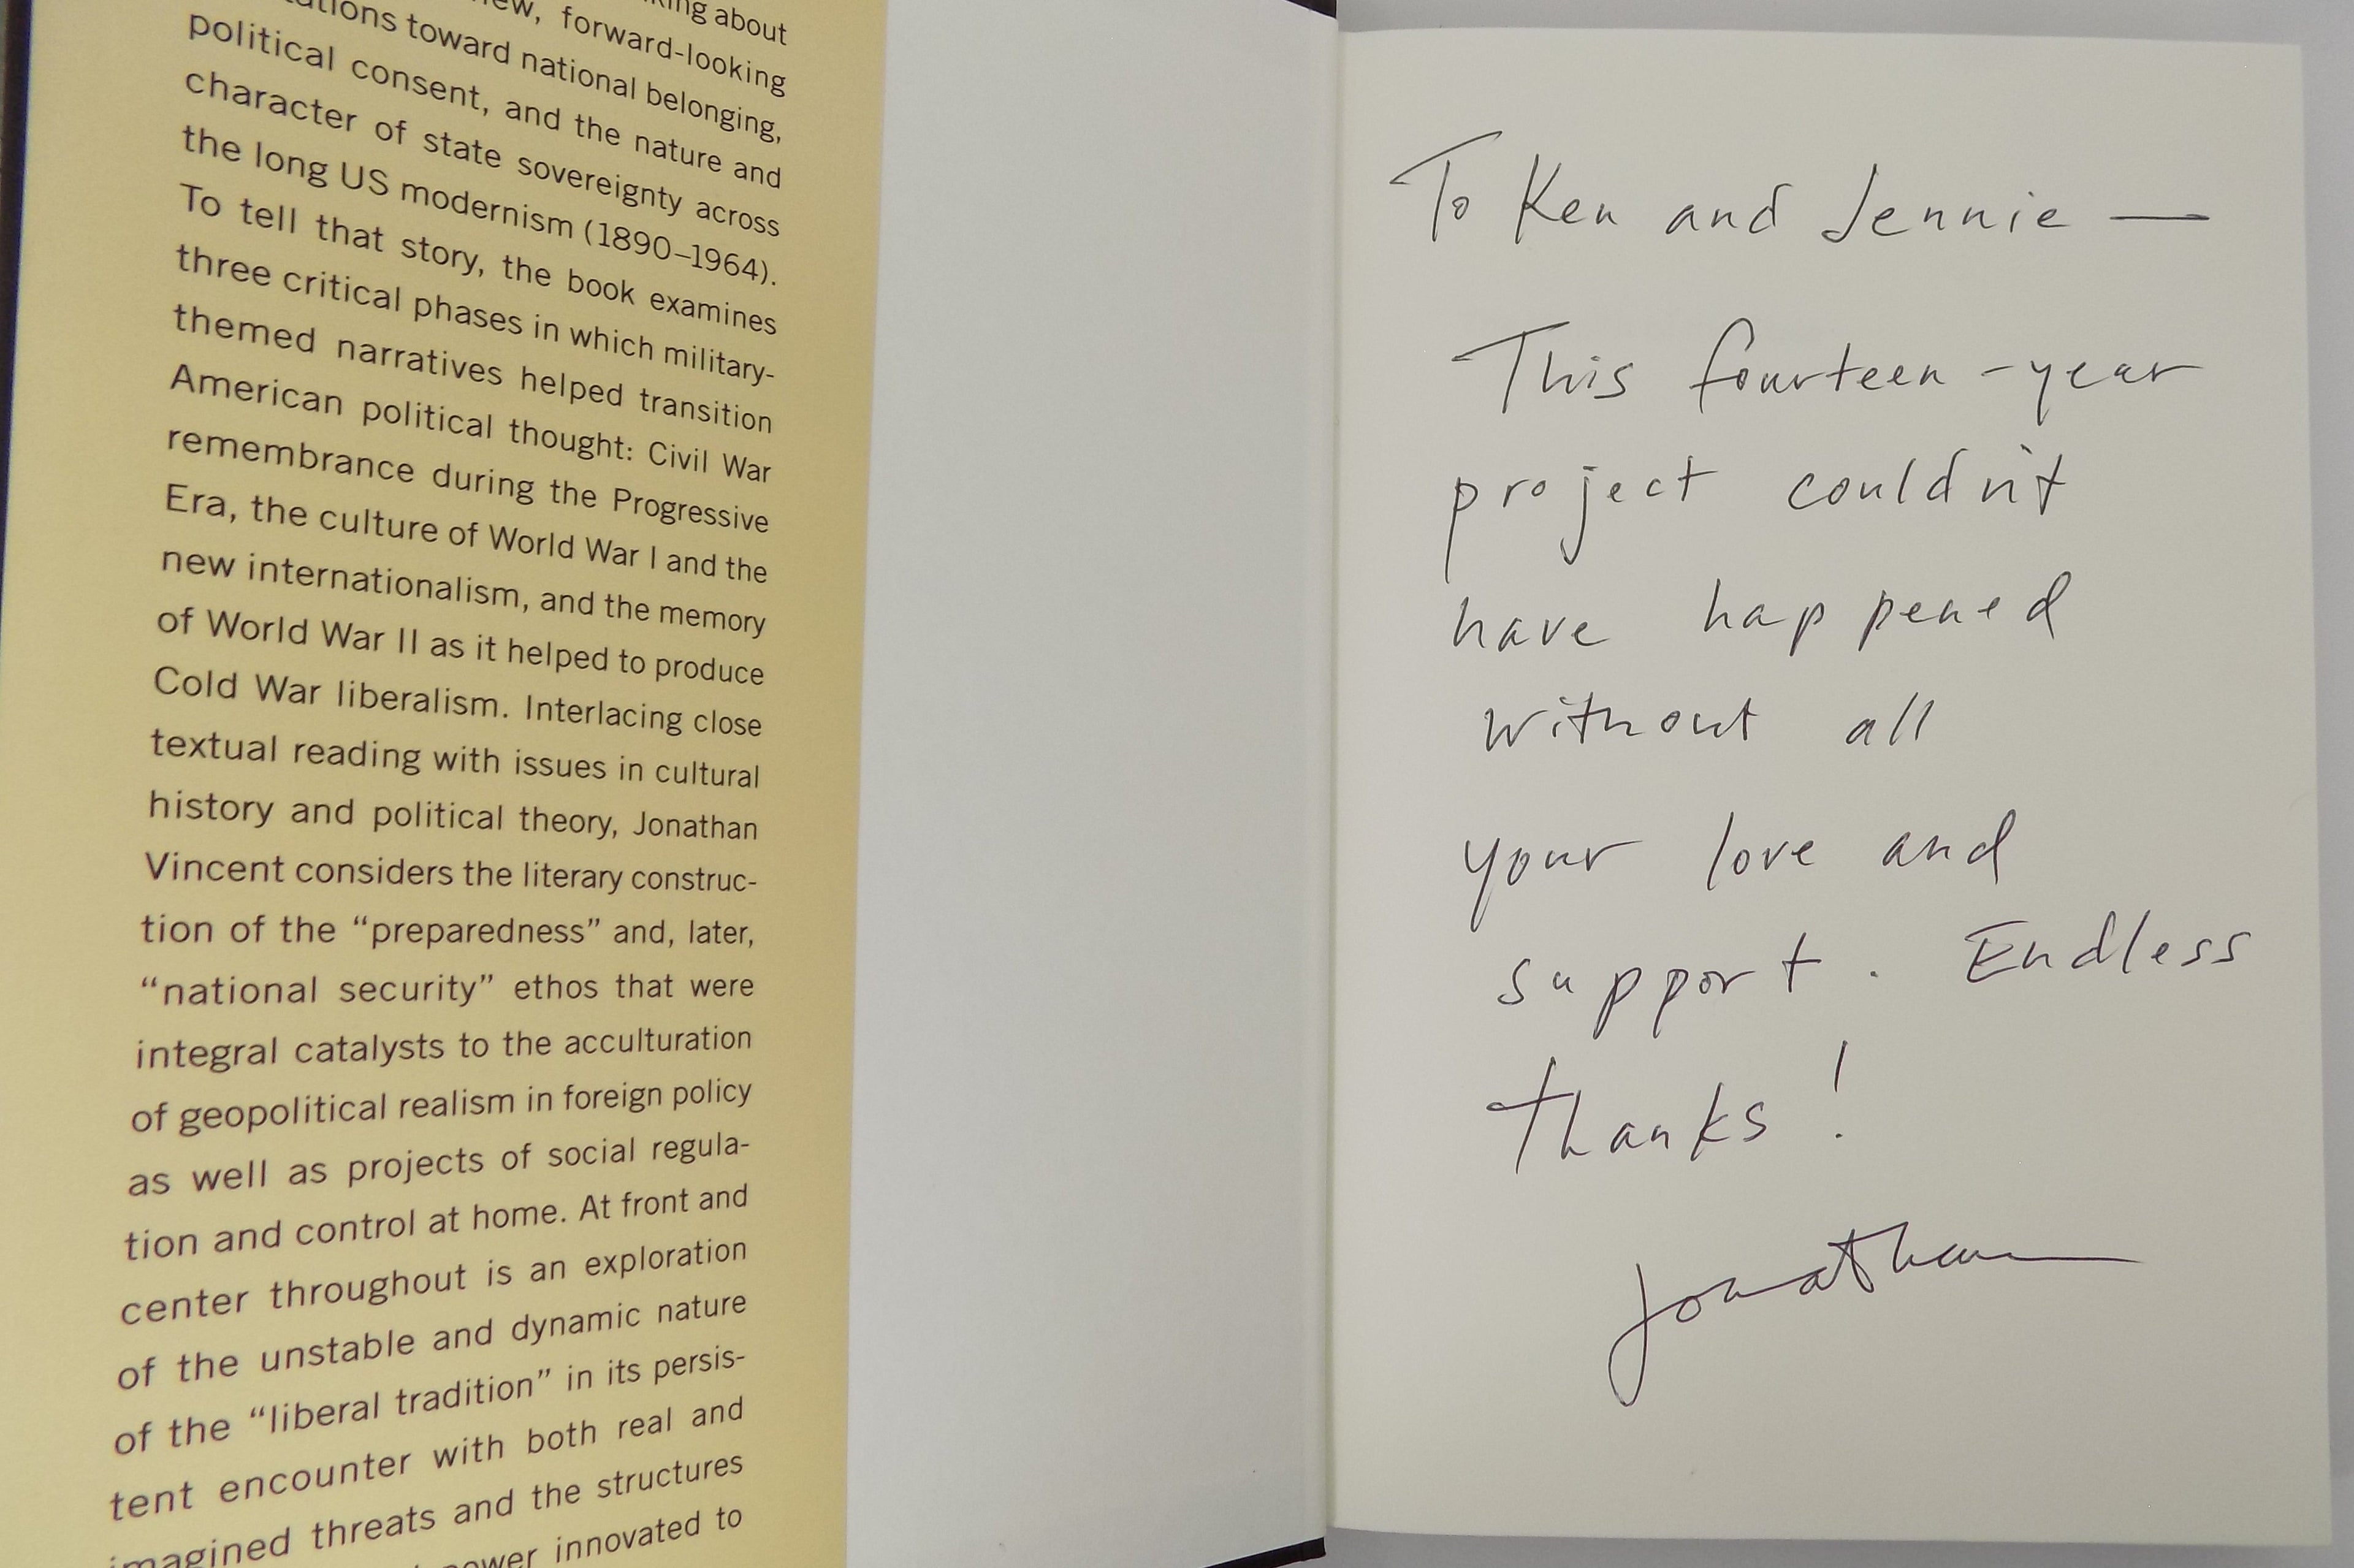 about
forward-looking
toward national belonging,
political consent, and the nature and
character of state sovereignty across
the long US modernism (1890–1964).
To tell that story, the book examines
three critical phases in which military-
themed narratives helped transition
American political thought: Civil War
remembrance during the Progressive
Era, the culture of World War I and the
new internationalism, and the memory
of World War II as it helped to produce
Cold War liberalism. Interlacing close
textual reading with issues in cultural
history and political theory, Jonathan
Vincent considers the literary construc-
tion of the “preparedness” and, later,
“national security” ethos that were
integral catalysts to the acculturation
of geopolitical realism in foreign policy
as well as projects of social regula-
tion and control at home. At front and
center throughout is an exploration
of the unstable and dynamic nature
of the “liberal tradition” in its persis-
tent encounter with both real and
imagined threats and the structures
power innovated to
To Ken and Jennie —
This fourteen-year
project couldn't
have happened
without all
your love and
support. Endless
thanks!
Jonathan